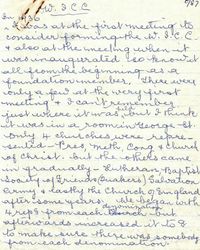 W. I C C
In 1936
I was at the first meeting to
consider forming the W.I.C.C
& also at the meeting when it
was inaugurated so know it
all from the beginning as a
foundation member. There were
only a few at the very first
meeting & I can't remember
just where it was, but I think
it was in a room in George St.
Only 4 churches were repre
sented - Pres, Meth, Cong & Church
of Christ. But the others came
in gradually - Lutheran, Baptist
Society of Friends (Quakers) Salvation
Army & lastly the Church of England
after some years. We began with
4 reps from each denomination but
afterwards increased it to 8
to make sure there was somebody
from each denomination